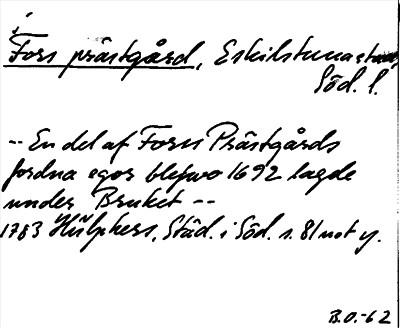 i
Fors prästgård, Eskilstuna stad,
Söd. l.
-- En del af Fors Prästgårds
fordna egor blefwo 1692 lagde
under Bruket --
1783 Hülphers, Städ. i Söd. s. 81 not y.
B.O.-62